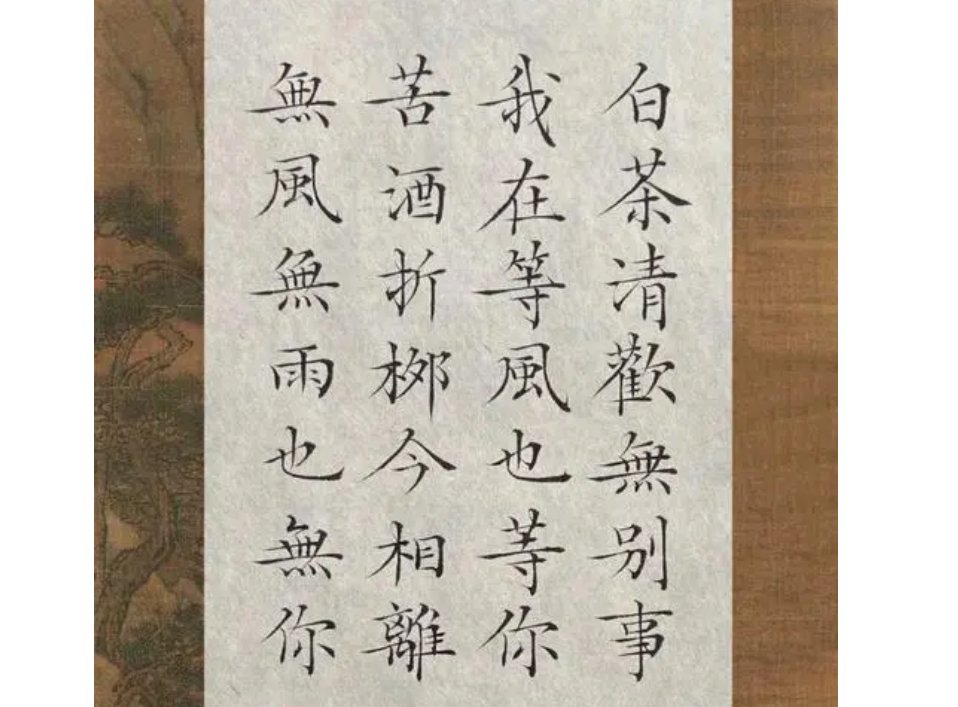 白茶清歡無别事
我在等風也等你
苦酒折柳今相離
無風無雨也無你